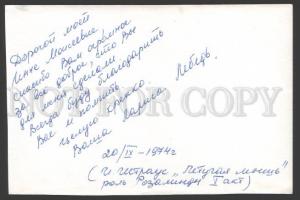 Дорогой моей
Инне Моисеевне,
спасибо Вам огромное
за все доброе, что Вы
для меня сделали.
Всегда буду благодарить
Вас и помнить.
Целую крепко.
Ваша Лариса Лебедь.
20/IX-1974г
(И. Штраус „Летучая мышь"
роль Розалинды I акт)
NOT FOR COPY